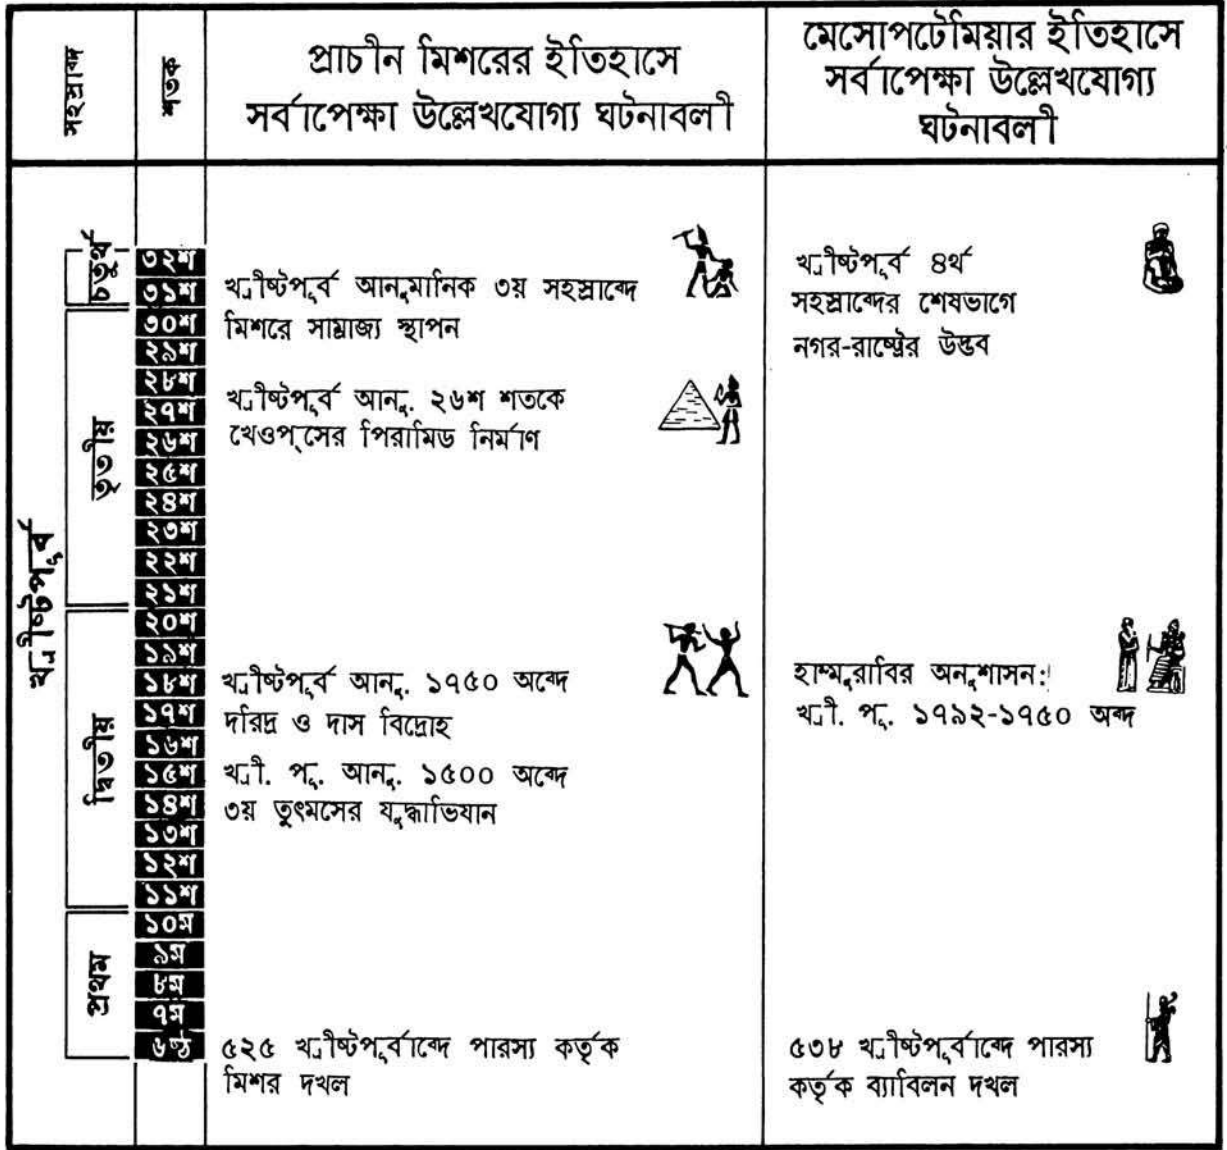 সহস্রাব্দ
শতক
প্রাচীন মিশরের ইতিহাসে
সর্বাপেক্ষা উল্লেখযোগ্য ঘটনাবলী
মেসোপটেমিয়ার ইতিহাসে
সর্বাপেক্ষা উল্লেখযোগ্য
ঘটনাবলী
খ্রীষ্টপূর্ব
চতুর্থ
৩২শ
৩১শ
তৃতীয়
৩০শ
২৯শ
২৮শ
২৭শ
২৬শ
২৫শ
২৪শ
২৩শ
২২শ
২১শ
দ্বিতীয়
২০শ
১৯শ
১৮শ
১৭শ
১৬শ
১৫শ
১৪শ
১৩শ
১২শ
১১শ
প্রথম
১০ম
৯ম
৮ম
৭ম
৬ষ্ঠ
খ্রীষ্টপূর্ব আনুমানিক ৩য় সহস্রাব্দে
মিশরে সাম্রাজ্য স্থাপন
খ্রীষ্টপূর্ব আনু. ২৬শ শতকে
খেওপ্‌সের পিরামিড নির্মাণ
খ্রীষ্টপূর্ব আনু. ১৭৫০ অব্দে
দরিদ্র ও দাস বিদ্রোহ
খ্রী. পূ. আনু. ১৫০০ অব্দে
৩য় তুৎমসের যুদ্ধাভিযান
৫২৫ খ্রীষ্টপূর্বাব্দে পারস্য কর্তৃক
মিশর দখল
খ্রীষ্টপূর্ব ৪র্থ
সহস্রাব্দের শেষভাগে
নগর-রাষ্ট্রের উদ্ভব
হাম্মুরাবির অনুশাসন:
খ্রী. পূ. ১৭৯২-১৭৫০ অব্দ
৫৩৮ খ্রীষ্টপূর্বাব্দে পারস্য
কর্তৃক ব্যাবিলন দখল